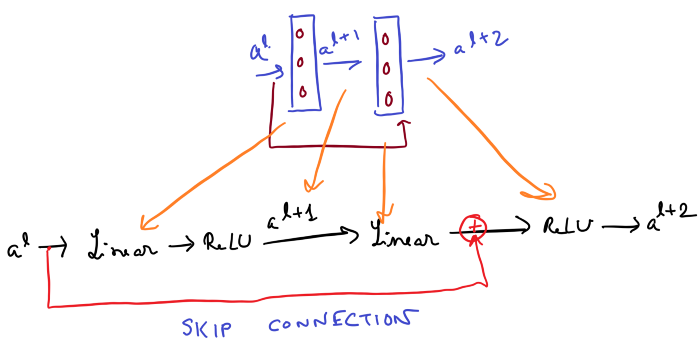 a^l a^l+1 a^l+2
a^l → Linear → ReLU a^l+1 → Linear + → ReLU → a^l+2
SKIP CONNECTION